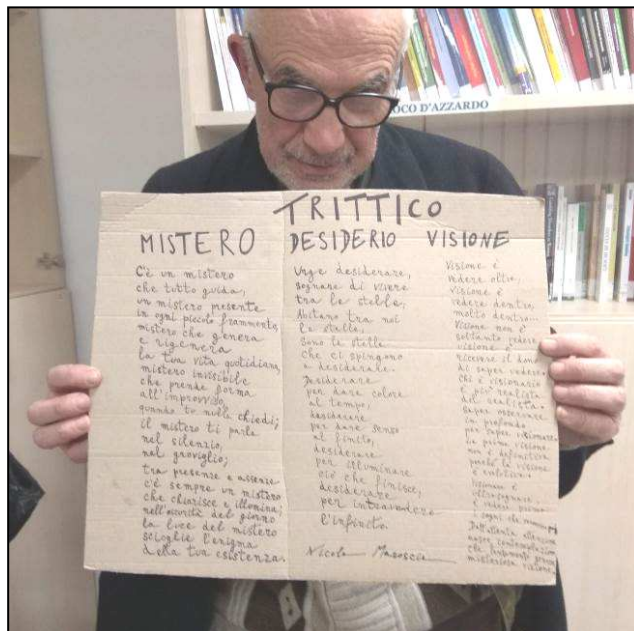 OCO D'AZZARDO
TRITTICO
MISTERO
C'è un mistero
che tutto guida,
un mistero presente
in ogni piccolo frammento,
mistero che genera
e rigenera
la tua vita quotidiana,
mistero invisibile
che prende forma
all'improvviso,
quando tu nulla chiedi;
il mistero ti parla
nel silenzio,
nel groviglio;
tra presenze e assenze
c'è sempre un mistero
che chiarisce e illumina;
nell'oscurità del giorno
la luce del mistero
scioglie l'enigma
della tua esistenza.
DESIDERIO
Urge desiderare,
sognare di vivere
tra le stelle;
Abitano tra noi
le stelle.
Sono le stelle
che ci spingono
a desiderare.
Desiderare
per dare colore
al tempo,
desiderare
per dare senso
al finito,
desiderare
per illuminare
ciò che finisce,
desiderare
per intravedere
l'infinito.
Nicola
VISIONE
Visione è
vedere oltre,
visione è
vedere dentro,
molto dentro...
Visione non è
soltanto vedere
visione è
ricevere il dono
di saper vedere.
Chi è visionario
è più realista
del realista.
saper osservare
in profondo
per saper visionare.
La prima visione
non è definitiva
perché la visione
Visione è
oltre
è vedere prima
Dall'attenta
nasce contemplazione
che
misteriosa visione.